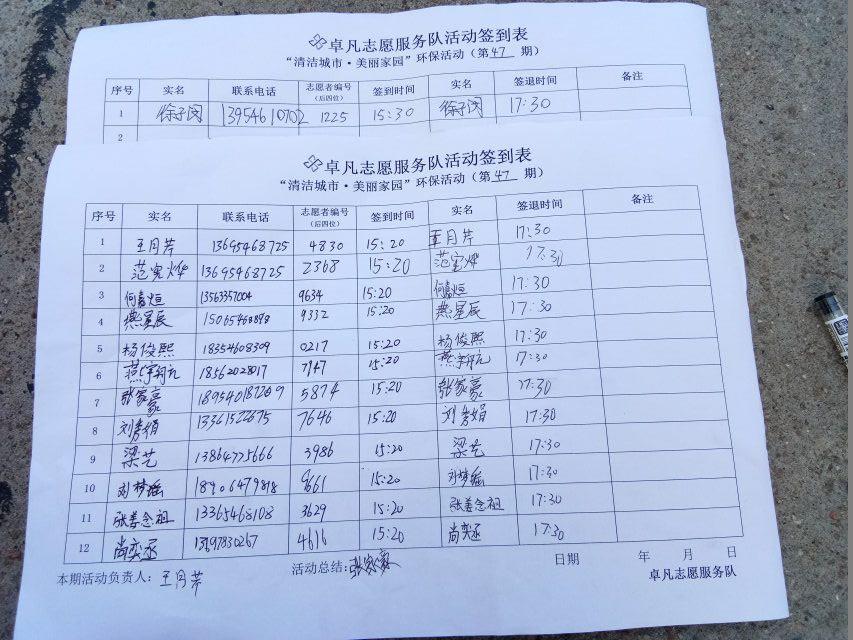 卓凡志愿服务队活动签到表
“清洁城市·美丽家园”环保活动（第 47 期）
序号 实名 联系电话 志愿者编号（后四位） 签到时间 实名 签退时间 备注
1 徐子闵 13954610702 1225 15:30 徐子闵 17:30
2
卓凡志愿服务队活动签到表
“清洁城市·美丽家园”环保活动（第 47 期）
序号 实名 联系电话 志愿者编号（后四位） 签到时间 实名 签退时间 备注
1 王月芹 13695468725 4830 15:20 王月芹 17:30
2 范寔烨 13695468725 2368 15:20 范寔烨 17:30
3 何嘉烜 13563357004 9634 15:20 何嘉烜 17:30
4 燕星辰 15065460898 9332 15:20 燕星辰 17:30
5 杨俊熙 18354608309 0217 15:20 杨俊熙 17:30
6 燕宇翔 18562028017 7947 15:20 燕宇翔 17:30
7 张家豪 5874 15:20 张家豪 17:30
8 刘秀娟 13361522675 7646 15:20 刘秀娟 17:30
9 梁艺 13864775666 3986 15:20 梁艺 17:30
10 刘梦瑶 18906479818 9661 15:20 刘梦瑶 17:30
11 张善念祖 13365468108 3629 15:20 张善念祖 17:30
12 尚奕丞 4616 15:20 尚奕丞 17:30
本期活动负责人：王月芹 活动总结：张家豪 日期 年 月 日
卓凡志愿服务队